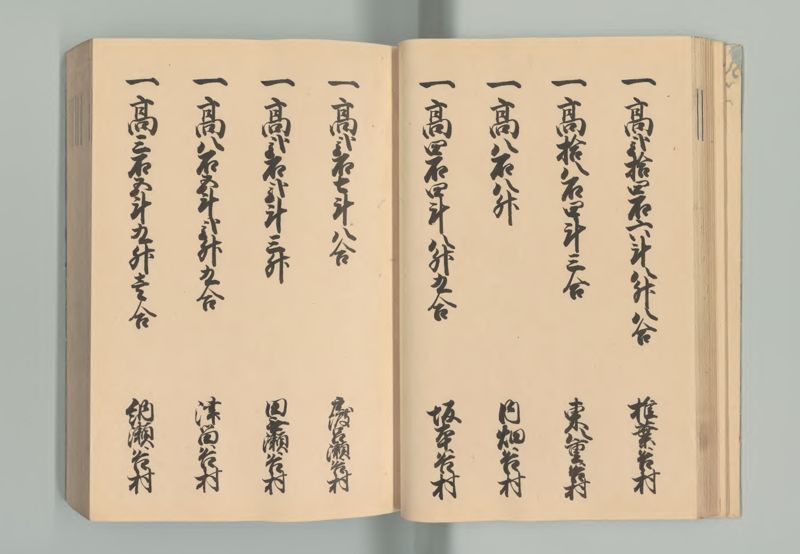 一 高弐拾四石六斗八升八合 椎葉谷村
一 高拾八石四斗三合 東八重谷村
一 高八石八升 内畑谷村
一 高四石四斗八升九合 坂本谷村
一 高弐石七斗八合 瀬谷村
一 高弐石弐斗三升 田瀬谷村
一 高八石五斗弐升九合 津留谷村
一 高三石五斗九升壱合 網瀬谷村